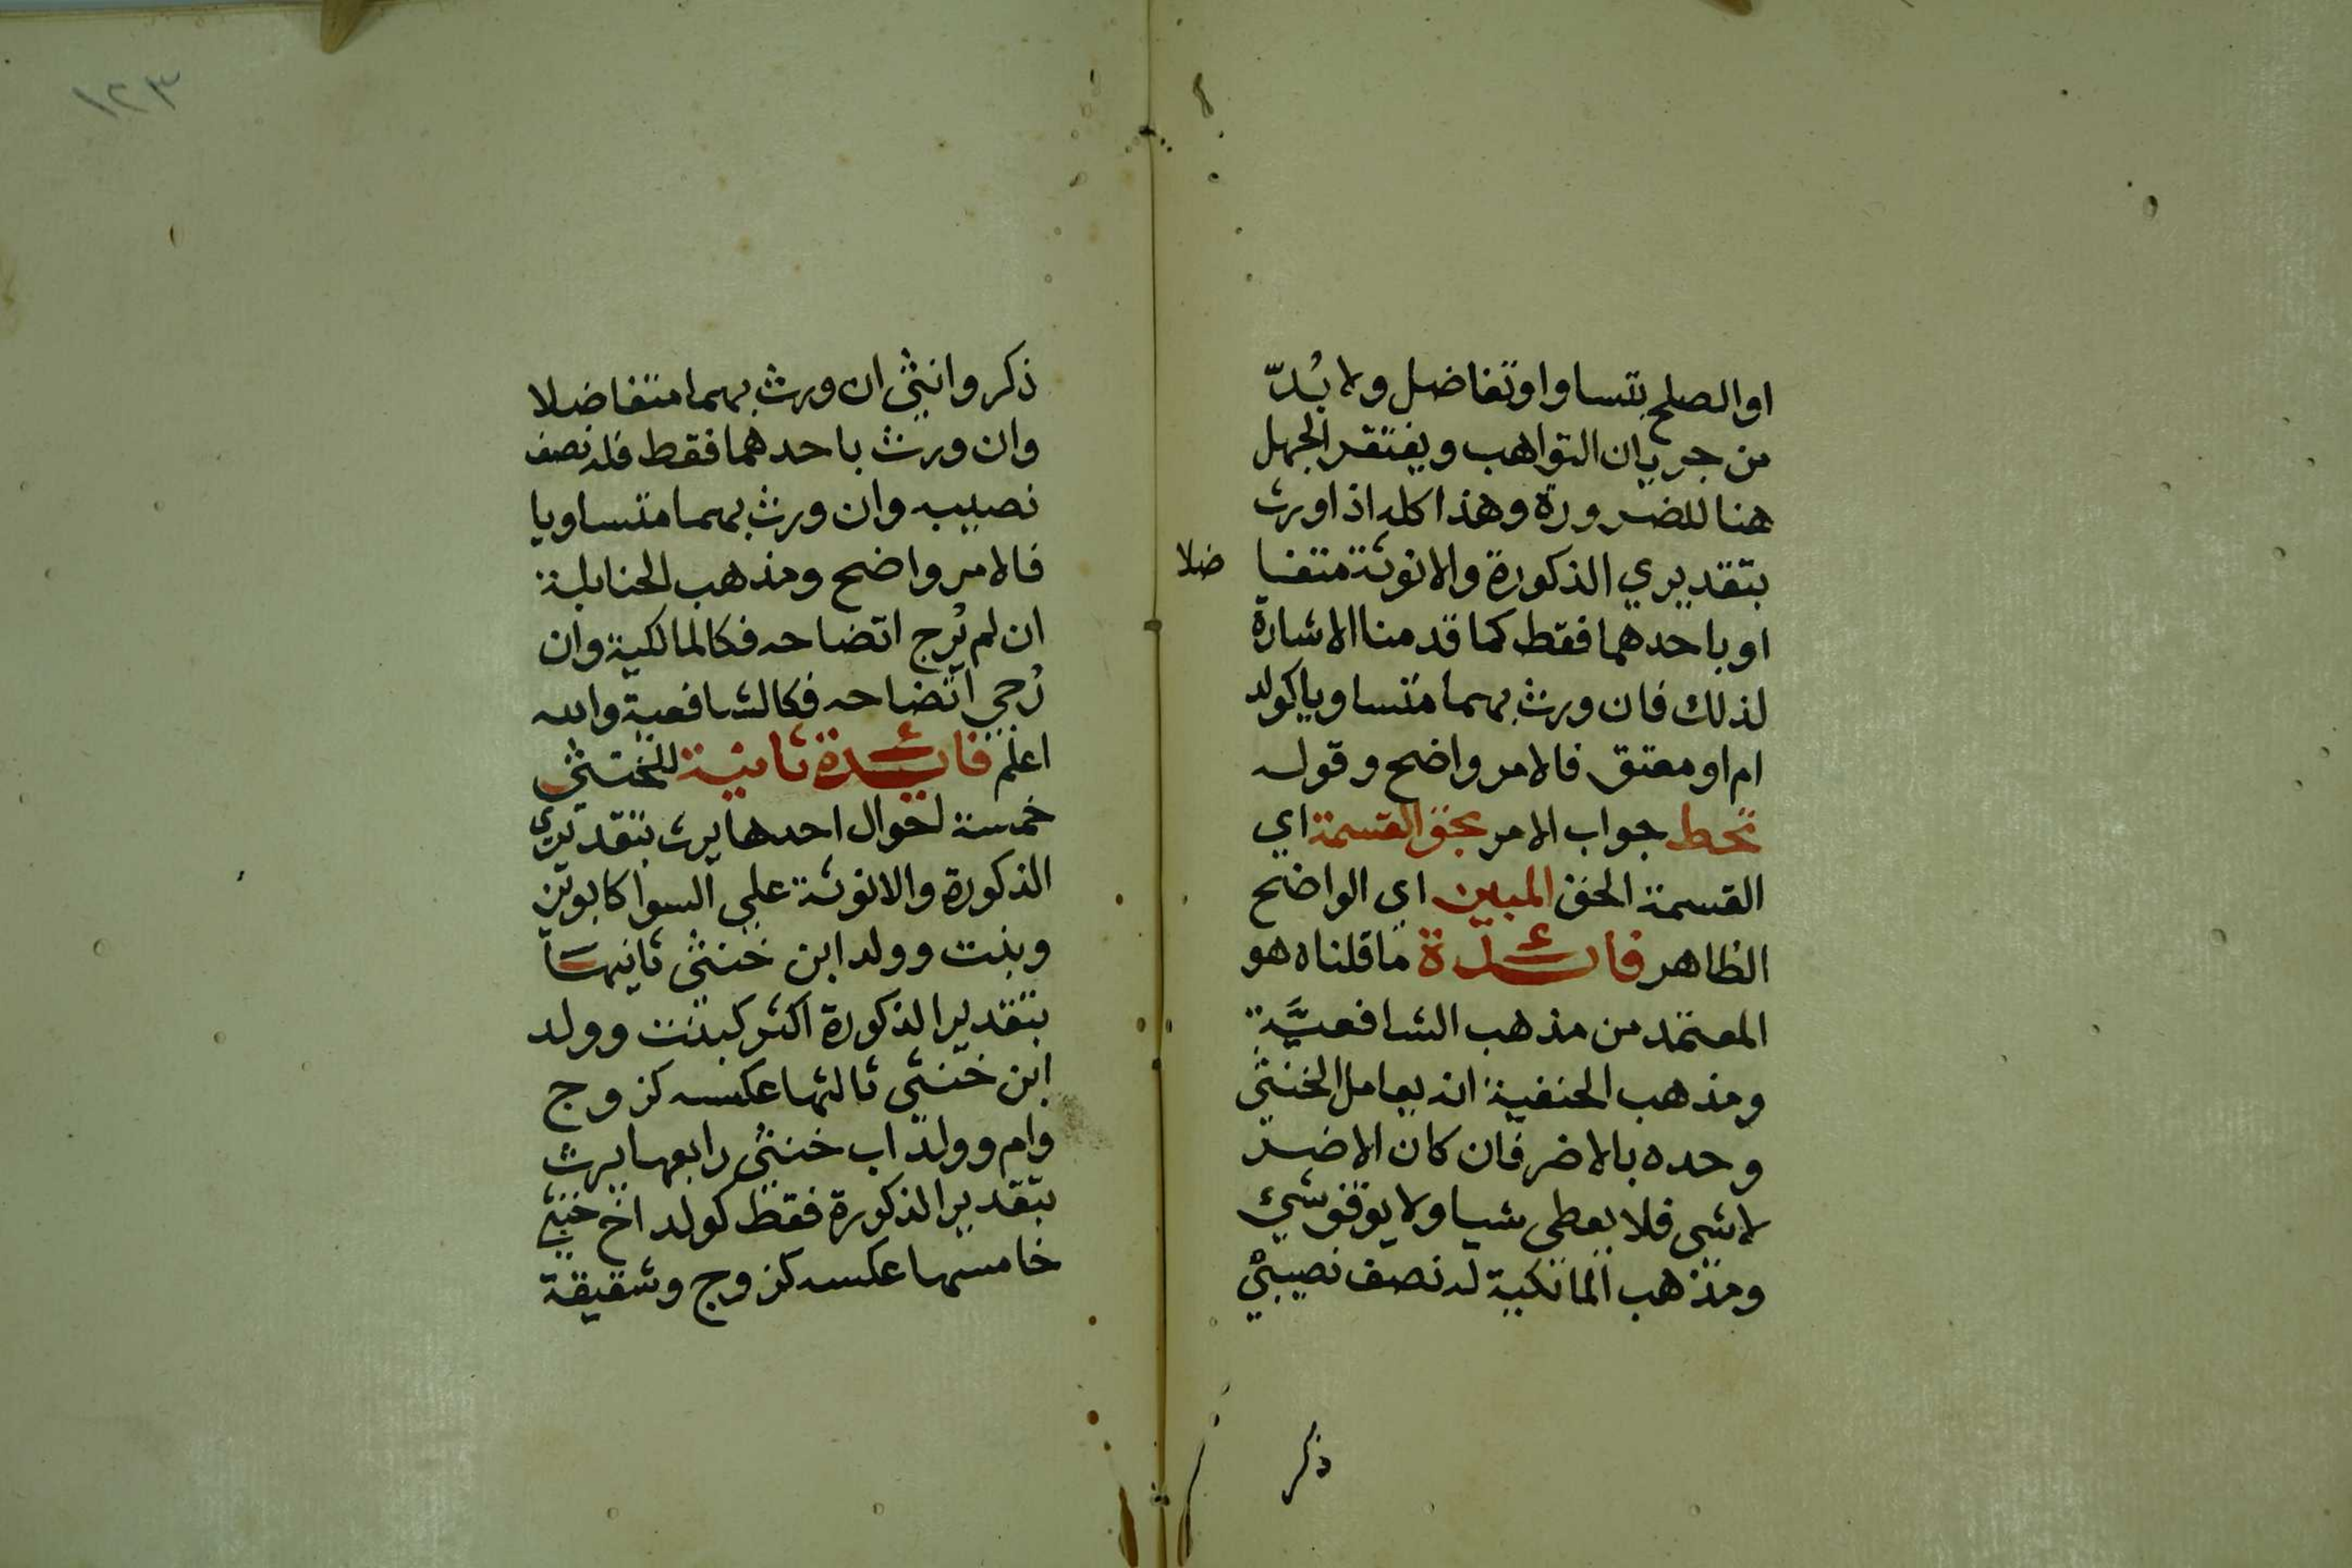 او الصلح بتساوا وتفاضل ولا بُدّ
من جريان التواهب ويغتقر الجهل
هنا للضرورة وهذا كله اذا ورث
بتقديري الذكورة والانوثة متفاضلا
او باحدهما فقط كما قدمنا الاشارة
لذلك فان ورث بهما متساويا كولد
ام او معتق فالامر واضح وقوله
تحط جواب الامر بحق القسمة اي
القسمة الحق المبين اي الواضح
الظاهر فائدة ما قلناه هو
المعتمد من مذهب الشافعيَّة
ومذهب الحنفية انه يعامل الخنثى
وحده بالاضر فان كان الاضر
لا شى فلا يعطى شيا ولا يوقف شيء
ومذهب المالكية له نصف نصيبي
ذكر
١٢٣
ذكر وانثي ان ورث بهما متفاضلا
وان ورث باحدهما فقط فله نصف
نصيبه وان ورث بهما متساويا
فالامر واضح ومذهب الحنابلة
ان لم يُرج اتضاحه فكالمالكية وان
رُجي اتضاحه فكالشافعية والله
اعلم فائدة ثانية للخنثي
خمسة احوال احدها يرث بتقديري
الذكورة والانوثة علي السوا كابوين
وبنت وولد ابن خنثي ثانيها
بتقدير الذكورة اكثر كبنت وولد
ابن خنثي ثالثها عكسه كزوج
وام وولد اب خنثي رابعها يرث
بتقدير الذكورة فقط كولد اخ خنثي
خامسها عكسه كزوج وشقيقة